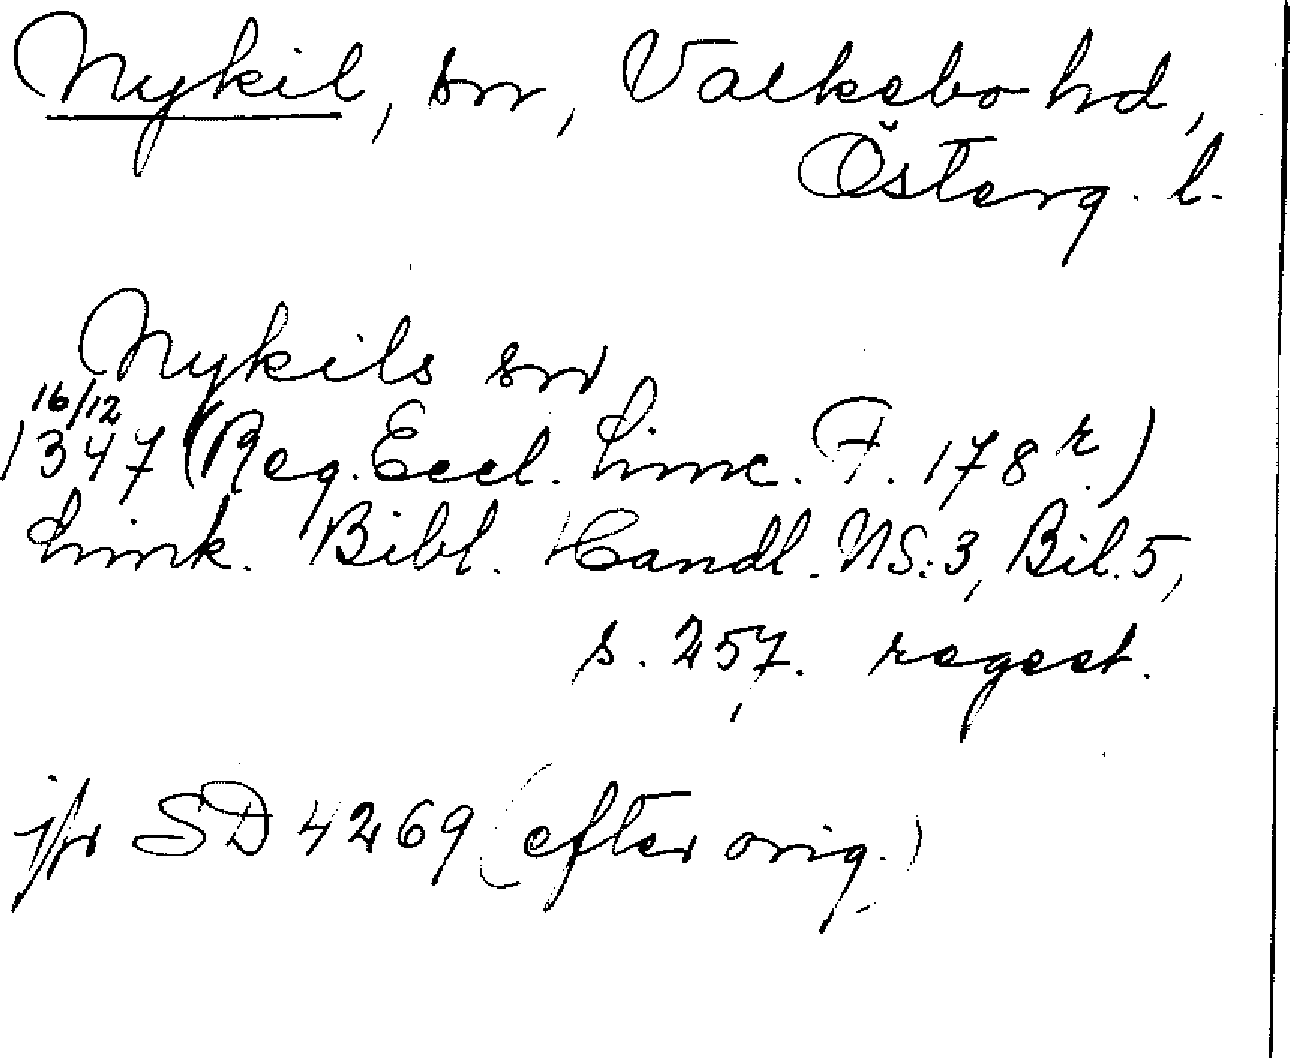 Nykil, sn, Valkebo hd,
Österg. l.
Nykils sn
16/12
1347 (Reg. Eccl. Linc. F. 178 r.)
Link. Bibl. Handl. NS:3, Bil. 5,
s. 257. regest.
jfr SD 4269 (efter orig.)